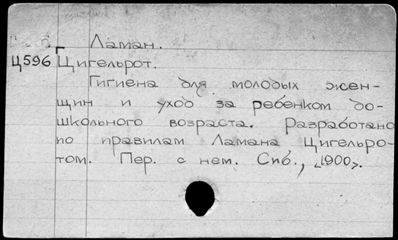 Ламан.
Ц596 Цигельрот.
Гигиена для молодых жен-
щин и уход за ребенком до-
школьного возраста. Разработано
по правилам Ламана, Цигельро-
том. Пер. с нем. Спб., <1900>.